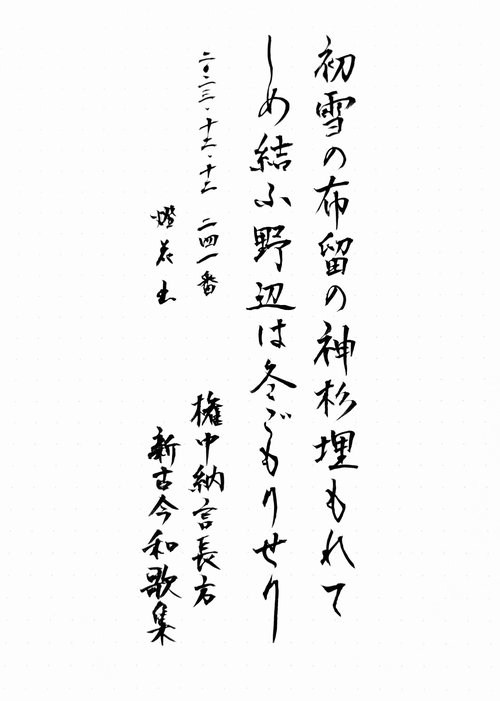 初雪の布留の神杉埋もれて
しめ結ふ野辺は冬ごもりせり
二〇二三・十二・十二 二四一番
権中納言長方
新古今和歌集